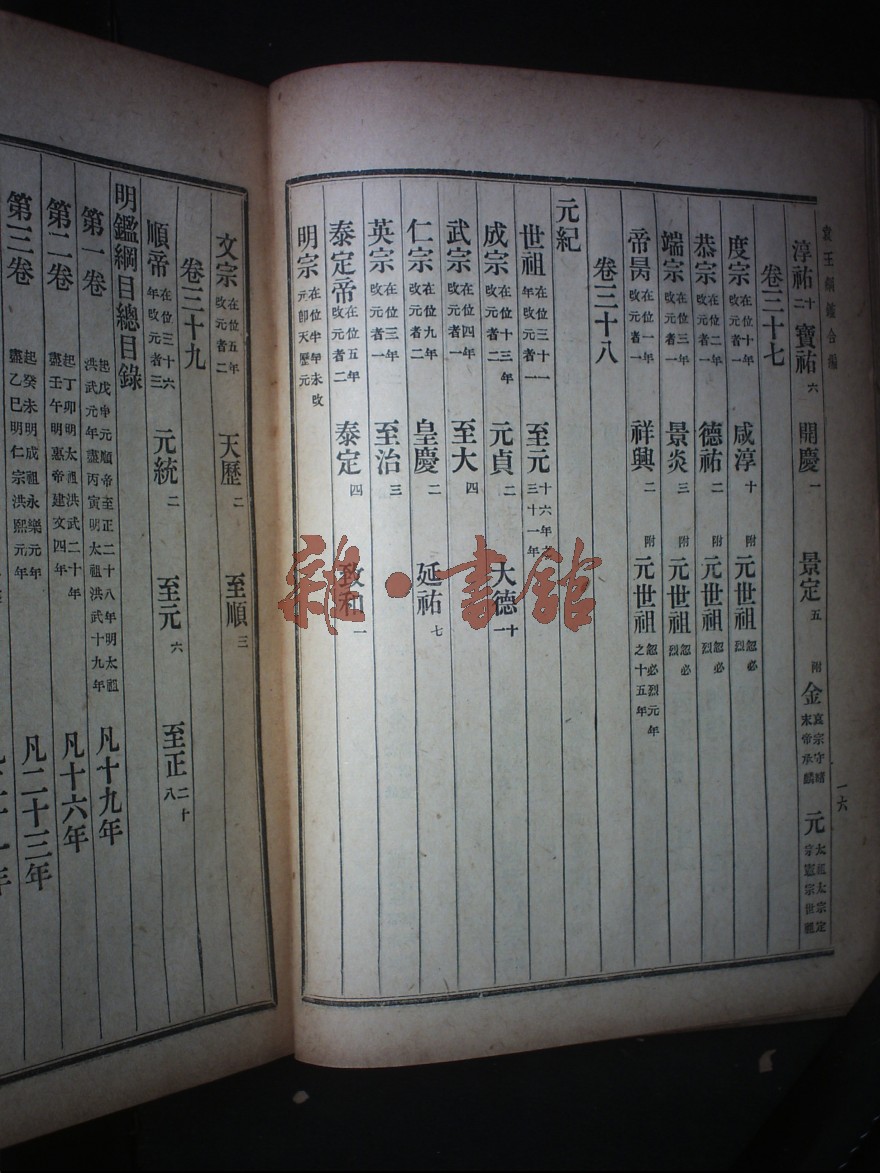 袁王綱鑑合編
一六
淳祐十二 寶祐六 開慶一 景定五 附 金哀宗守緒末帝承麟 元太祖太宗定宗憲宗世祖
卷三十七
度宗在位十年改元者一 咸淳十 附 元世祖忽必烈
恭宗在位二年改元者一 德祐二 附 元世祖忽必烈
端宗在位三年改元者一 景炎三 附 元世祖忽必烈
帝昺在位一年改元者一 祥興二 附 元世祖忽必烈元年之十五年
卷三十八
元紀
世祖在位三十一年改元者一 至元十六年 三十一年
成宗在位十三年改元者二 元貞二 大德十一
武宗在位四年改元者一 至大四
仁宗在位九年改元者二 皇慶二 延祐七
英宗在位三年改元者一 至治三
泰定帝在位五年改元者二 泰定四 致和一
明宗在位半年未改元卽天歷元
文宗在位五年改元者二 天歷二 至順三
卷三十九
順帝在位三十六年改元者三 元統二 至元六 至正二十八
明鑑綱目總目錄
第一卷 起戊申元順帝至正二十八年明太祖洪武元年盡丙寅明太祖洪武十九年 凡十九年
第二卷 起丁卯明太祖洪武二十年盡壬午明惠帝建文四年 凡十六年
第三卷 起癸未明成祖永樂元年盡乙巳明仁宗洪熙元年 凡二十三年
雜·書館